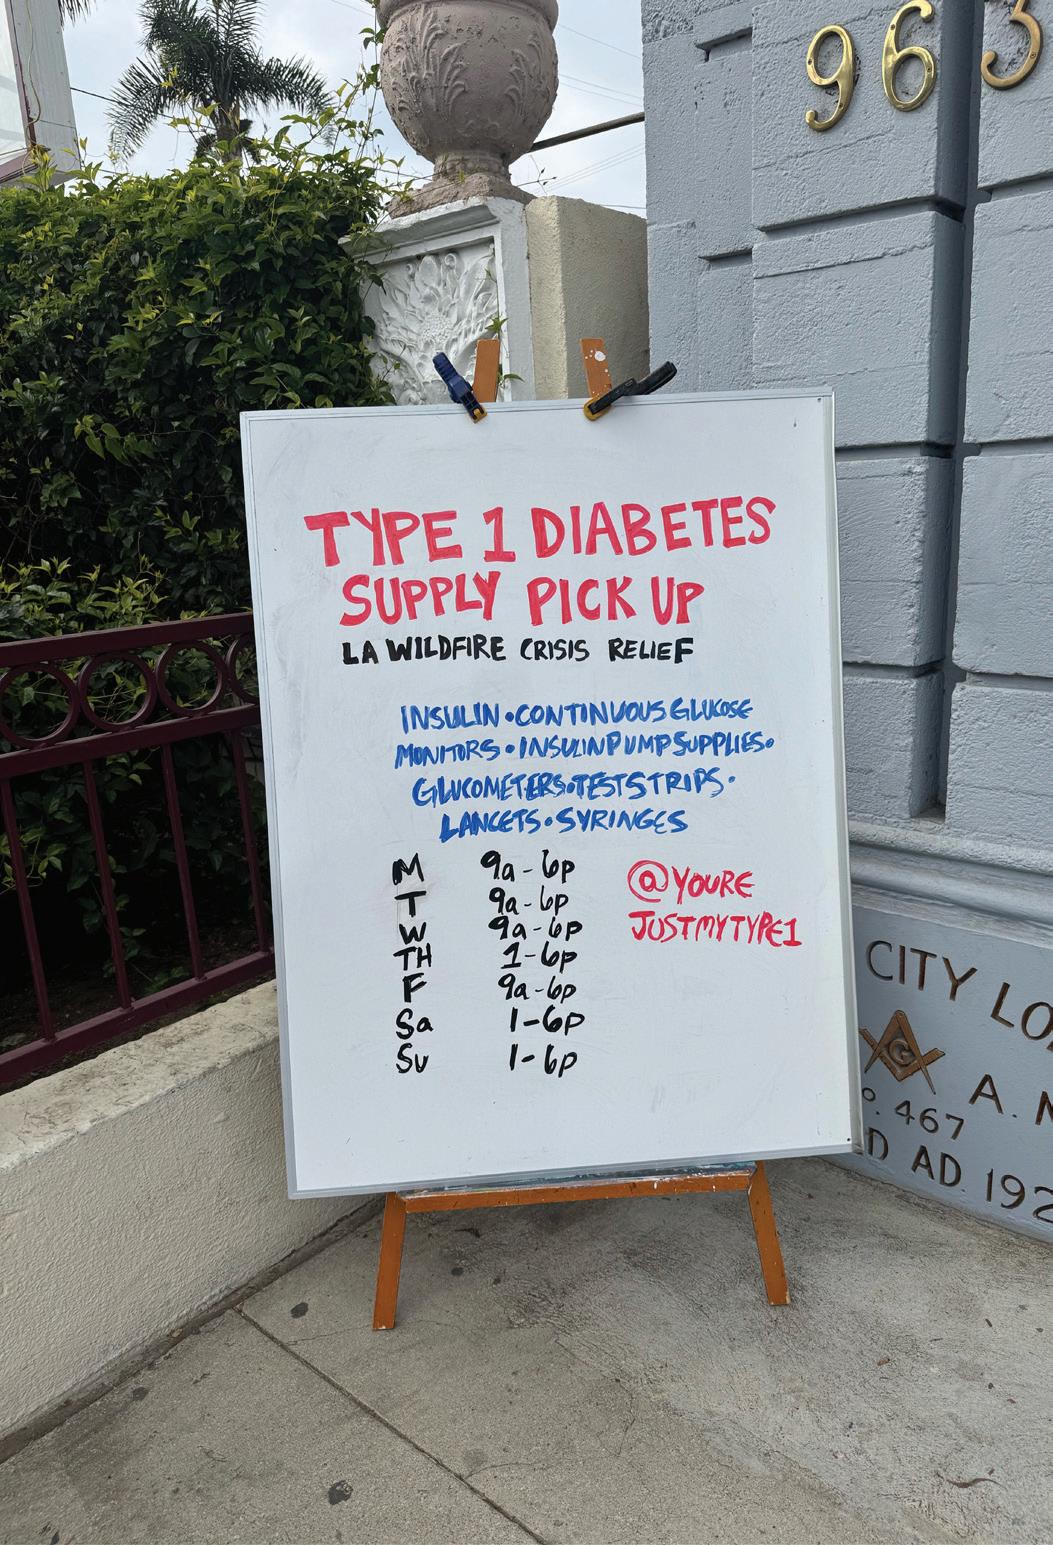 963
TYPE 1 DIABETES
SUPPLY PICK UP
LA WILDFIRE CRISIS RELIEF
INSULIN • CONTINUOUS GLUCOSE
MONITORS • INSULIN PUMP SUPPLIES •
GLUCOMETERS • TEST STRIPS •
LANCETS • SYRINGES
M 9a-6p
T 9a-6p
W 9a-6p
TH 1-6p
F 9a-6p
Sa 1-6p
Su 1-6p
@YOURE
JUSTMYTYPE1
CITY
G
A.
467
AD 192